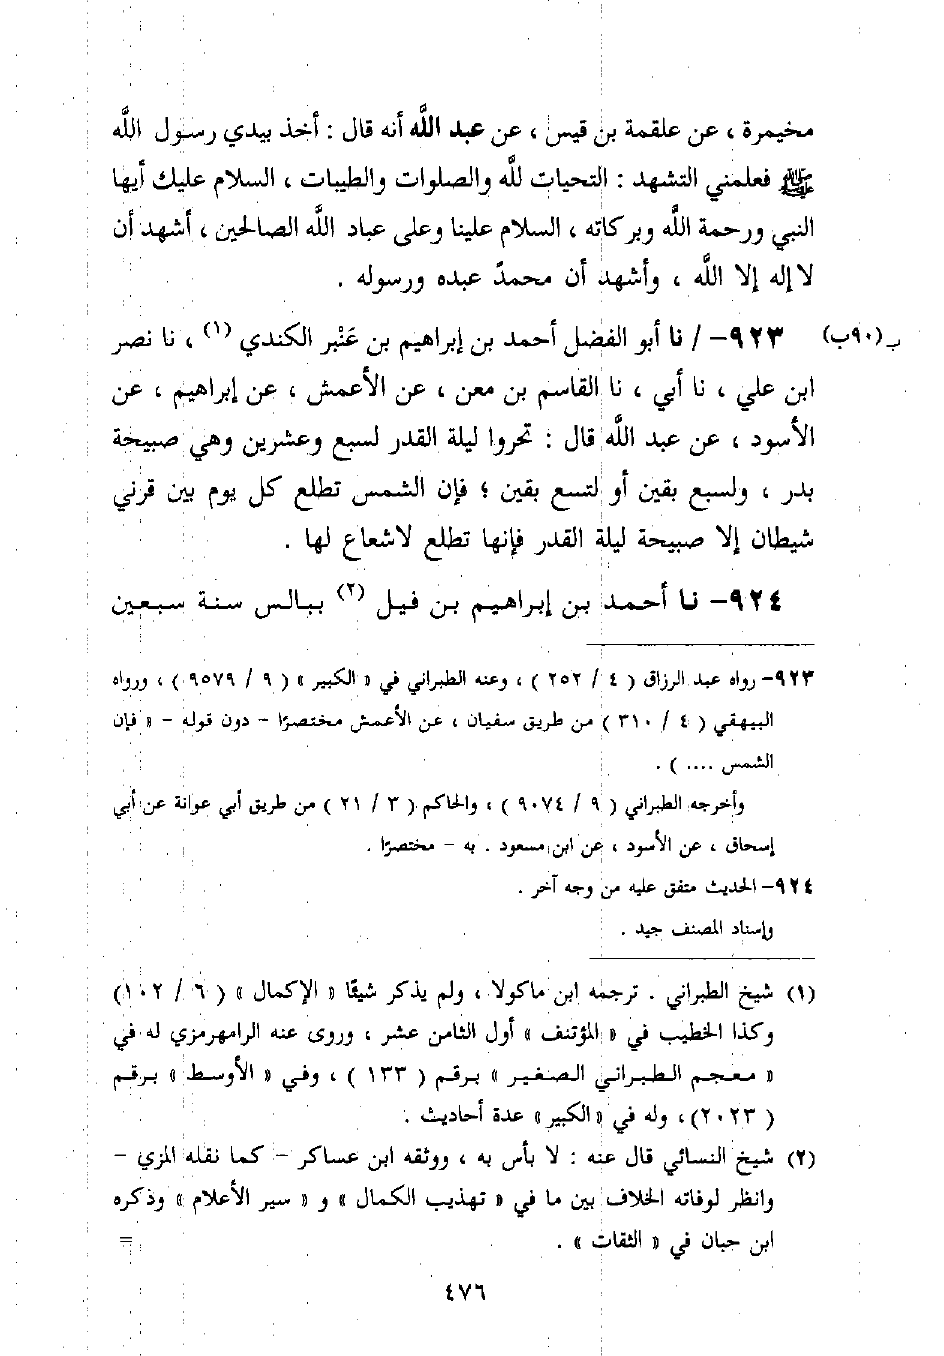 مخيمرة ، عن علقمة بن قيس ، عن عبد الله أنه قال : أخذ بيدي رسول الله
ﷺ فعلمني التشهد : التحيات لله والصلوات والطيبات ، السلام عليك أيها
النبي ورحمة الله وبركاته ، السلام علينا وعلى عباد الله الصالحين ، أشهد أن
لا إله إلا الله ، وأشهد أن محمدً عبده ورسوله .
٩٢٣- / نا أبو الفضل أحمد بن إبراهيم بن عَنْبر الكندي (١) ، نا نصر ب(٩٠ب)
ابن علي ، نا أبي ، نا القاسم بن معن ، عن الأعمش ، عن إبراهيم ، عن
الأسود ، عن عبد الله قال : تحروا ليلة القدر لسبع وعشرين وهي صبيحة
بدر ، ولسبع بقين أو لتسع بقين ؛ فإن الشمس تطلع كل يوم بين قرني
شيطان إلا صبيحة ليلة القدر فإنها تطلع لاشعاع لها .
٩٢٤- نـا أحمد بن إبراهيم بن فيل (٢) ببالس سنة سبعين
٩٢٣- رواه عبد الرزاق ( ٤ / ٢٥٢ ) ، وعنه الطبراني في « الكبير » ( ٩ / ٩٥٧٩ ) ، ورواه
البيهقي ( ٤ / ٣١٠ ) من طريق سفيان ، عن الأعمش مختصرًا - دون قوله - « فإن
الشمس .... ) .
وأخرجه الطبراني ( ٩ / ٩٠٧٤ ) ، والحاكم ( ٣ / ٢١ ) من طريق أبي عوانة عن أبي
إسحاق ، عن الأسود ، عن ابن مسعود . به - مختصرًا .
٩٢٤- الحديث متفق عليه من وجه آخر .
وإسناد المصنف جيد .
(١) شيخ الطبراني . ترجمه ابن ماكولا ، ولم يذكر شيئًا « الإكمال » ( ٦ / ١٠٢)
وكذا الخطيب في « المؤتنف » أول الثامن عشر ، وروى عنه الرامهرمزي له في
« معجم الطبراني الصغير » برقم ( ١٣٣ ) ، وفي « الأوسط » برقم
( ٢٠٢٣) ، وله في « الكبير » عدة أحاديث .
(٢) شيخ النسائي قال عنه : لا بأس به ، ووثقه ابن عساكر - كما نقله المزي -
وانظر لوفاته الخلاف بين ما في « تهذيب الكمال » و « سير الأعلام » وذكره
ابن حبان في « الثقات » . =
٤٧٦